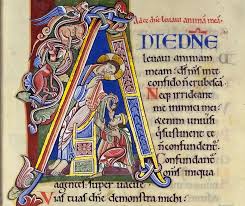 Ad te dne leuaui animam mea
A D TE DNE
leuaui animam
meam: ds ms in te
confido n erubesca
Neq irrideant
me inimici mei
sustinent te n
confundent
Confundant
oms iniqua
agentes superuacue
Vias tuas dne demonstra michi: